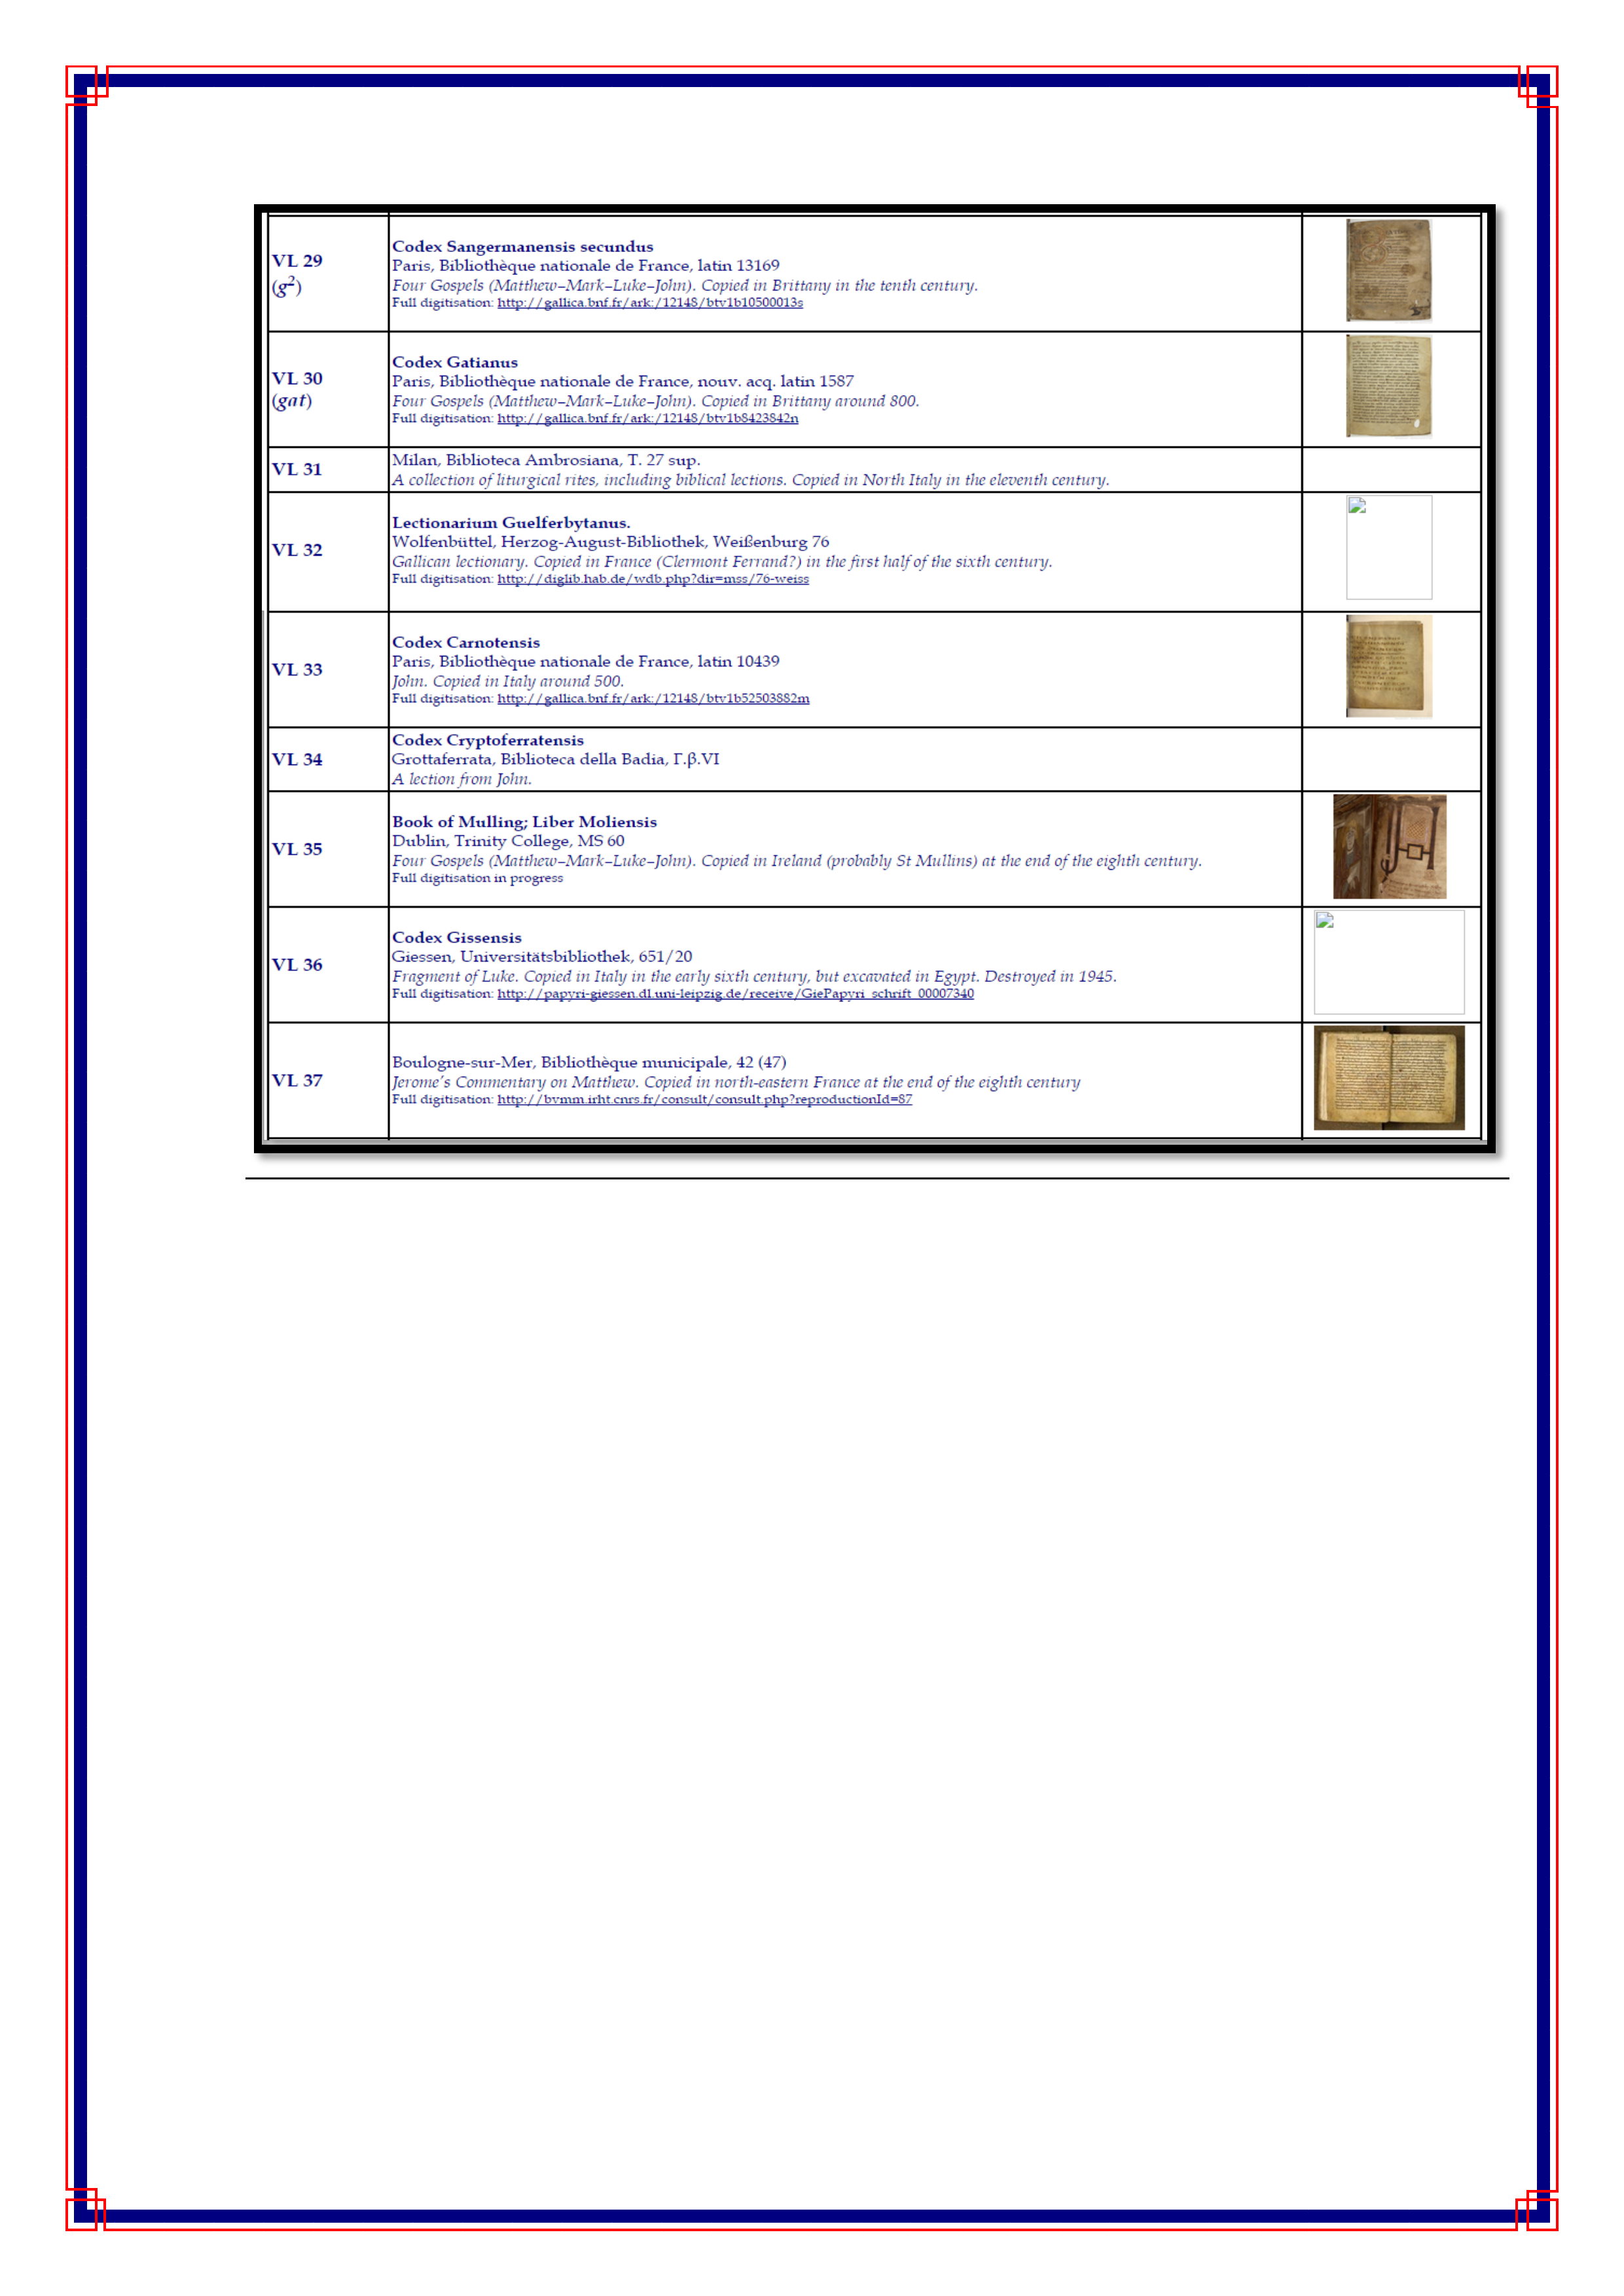 VL 29
(g²)
Codex Sangermanensis secundus
Paris, Bibliothèque nationale de France, latin 13169
Four Gospels (Matthew–Mark–Luke–John). Copied in Brittany in the tenth century.
Full digitisation: http://gallica.bnf.fr/ark:/12148/btv1b10500013s
VL 30
(gat)
Codex Gatianus
Paris, Bibliothèque nationale de France, nouv. acq. latin 1587
Four Gospels (Matthew–Mark–Luke–John). Copied in Brittany around 800.
Full digitisation: http://gallica.bnf.fr/ark:/12148/btv1b8423842n
VL 31
Milan, Biblioteca Ambrosiana, T. 27 sup.
A collection of liturgical rites, including biblical lections. Copied in North Italy in the eleventh century.
VL 32
Lectionarium Guelferbytanus.
Wolfenbüttel, Herzog-August-Bibliothek, Weißenburg 76
Gallican lectionary. Copied in France (Clermont Ferrand?) in the first half of the sixth century.
Full digitisation: http://diglib.hab.de/wdb.php?dir=mss/76-weiss
VL 33
Codex Carnotensis
Paris, Bibliothèque nationale de France, latin 10439
John. Copied in Italy around 500.
Full digitisation: http://gallica.bnf.fr/ark:/12148/btv1b52503882m
VL 34
Codex Cryptoferratensis
Grottaferrata, Biblioteca della Badia, Γ.β.VI
A lection from John.
VL 35
Book of Mulling; Liber Moliensis
Dublin, Trinity College, MS 60
Four Gospels (Matthew–Mark–Luke–John). Copied in Ireland (probably St Mullins) at the end of the eighth century.
Full digitisation in progress
VL 36
Codex Gissensis
Giessen, Universitätsbibliothek, 651/20
Fragment of Luke. Copied in Italy in the early sixth century, but excavated in Egypt. Destroyed in 1945.
Full digitisation: http://papyri-giessen.dl.uni-leipzig.de/receive/GiePapyri_schrift_00007340
VL 37
Boulogne-sur-Mer, Bibliothèque municipale, 42 (47)
Jerome's Commentary on Matthew. Copied in north-eastern France at the end of the eighth century
Full digitisation: http://bvmm.irht.cnrs.fr/consult/consult.php?reproductionId=87